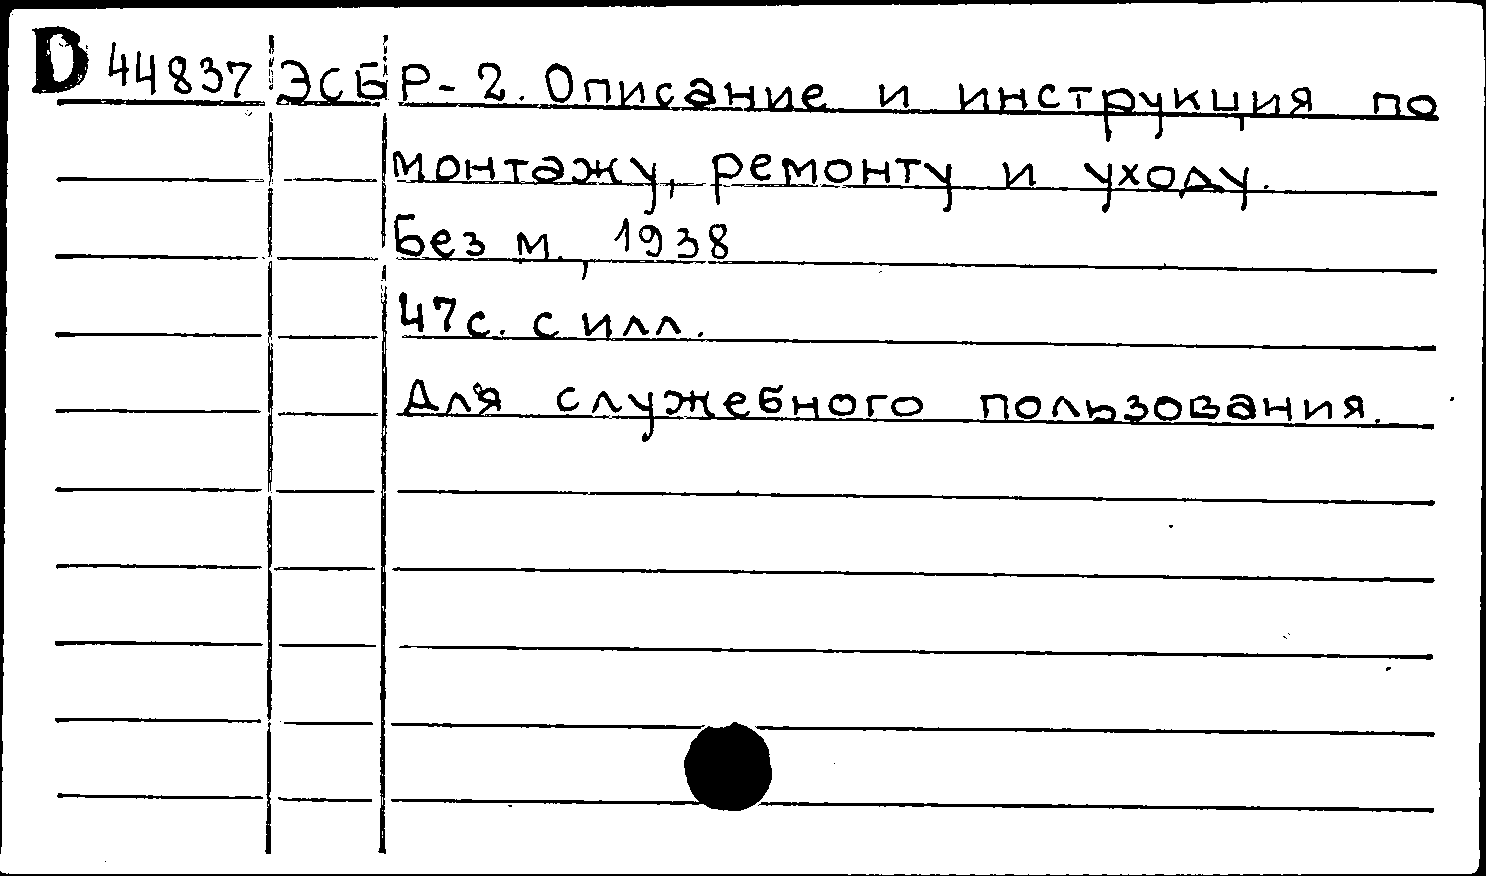 D 44837 ЭСБР-2. Описание и инструкция по
монтажу, ремонту и уходу.
Без м., 1938
47с. с илл.
Для служебного пользования.